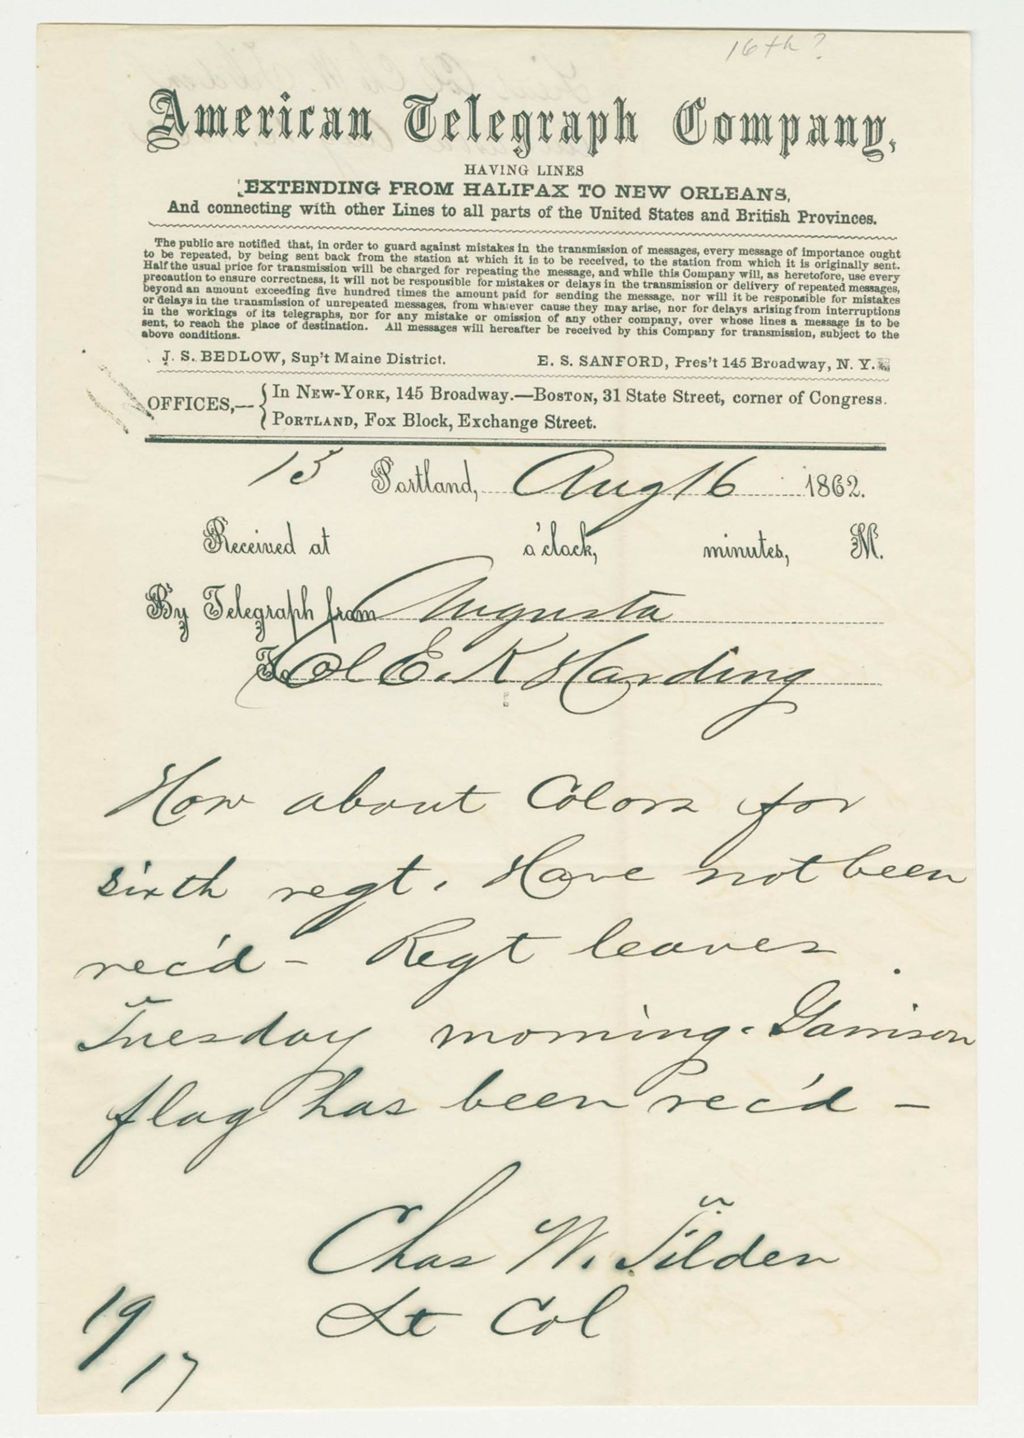 16th?
American Telegraph Company,
HAVING LINES
EXTENDING FROM HALIFAX TO NEW ORLEANS,
And connecting with other Lines to all parts of the United States and British Provinces.
The public are notified that, in order to guard against mistakes in the transmission of messages, every message of importance ought
to be repeated, by being sent back from the station at which it is to be received, to the station from which it is originally sent.
Half the usual price for transmission will be charged for repeating the message, and while this Company will, as heretofore, use every
precaution to ensure correctness, it will not be responsible for mistakes or delays in the transmission or delivery of repeated messages,
beyond an amount exceeding five hundred times the amount paid for sending the message, nor will it be responsible for mistakes
or delays in the transmission of unrepeated messages, from whatever cause they may arise, nor for delays arising from interruptions
in the workings of its telegraphs, nor for any mistake or omission of any other company, over whose lines a message is to be
sent, to reach the place of destination. All messages will hereafter be received by this Company for transmission, subject to the
above conditions.
J. S. BEDLOW, Sup't Maine District. E. S. SANFORD, Pres't 145 Broadway, N. Y.
OFFICES,— { In NEW-YORK, 145 Broadway.—BOSTON, 31 State Street, corner of Congress.
PORTLAND, Fox Block, Exchange Street.
15 Portland, Aug 16 1862.
Received at o'clock, minutes, M.
By Telegraph from Augusta
To Col E. K Harding
How about Colors for
sixth regt. Have not been
rec'd - Regt leaves
Tuesday morning. Garrison
flag has been rec'd -
Chas W. Tilden
Lt Col
19
17